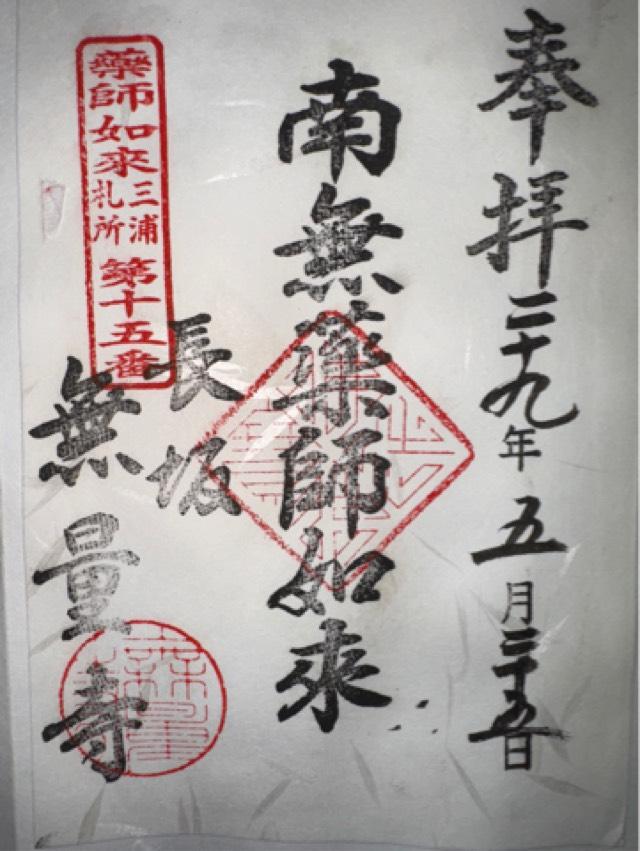 奉拝 二十九年 五月二十五日
南無薬師如来
藥師如來三浦札所第十五番
長坂
無量寺